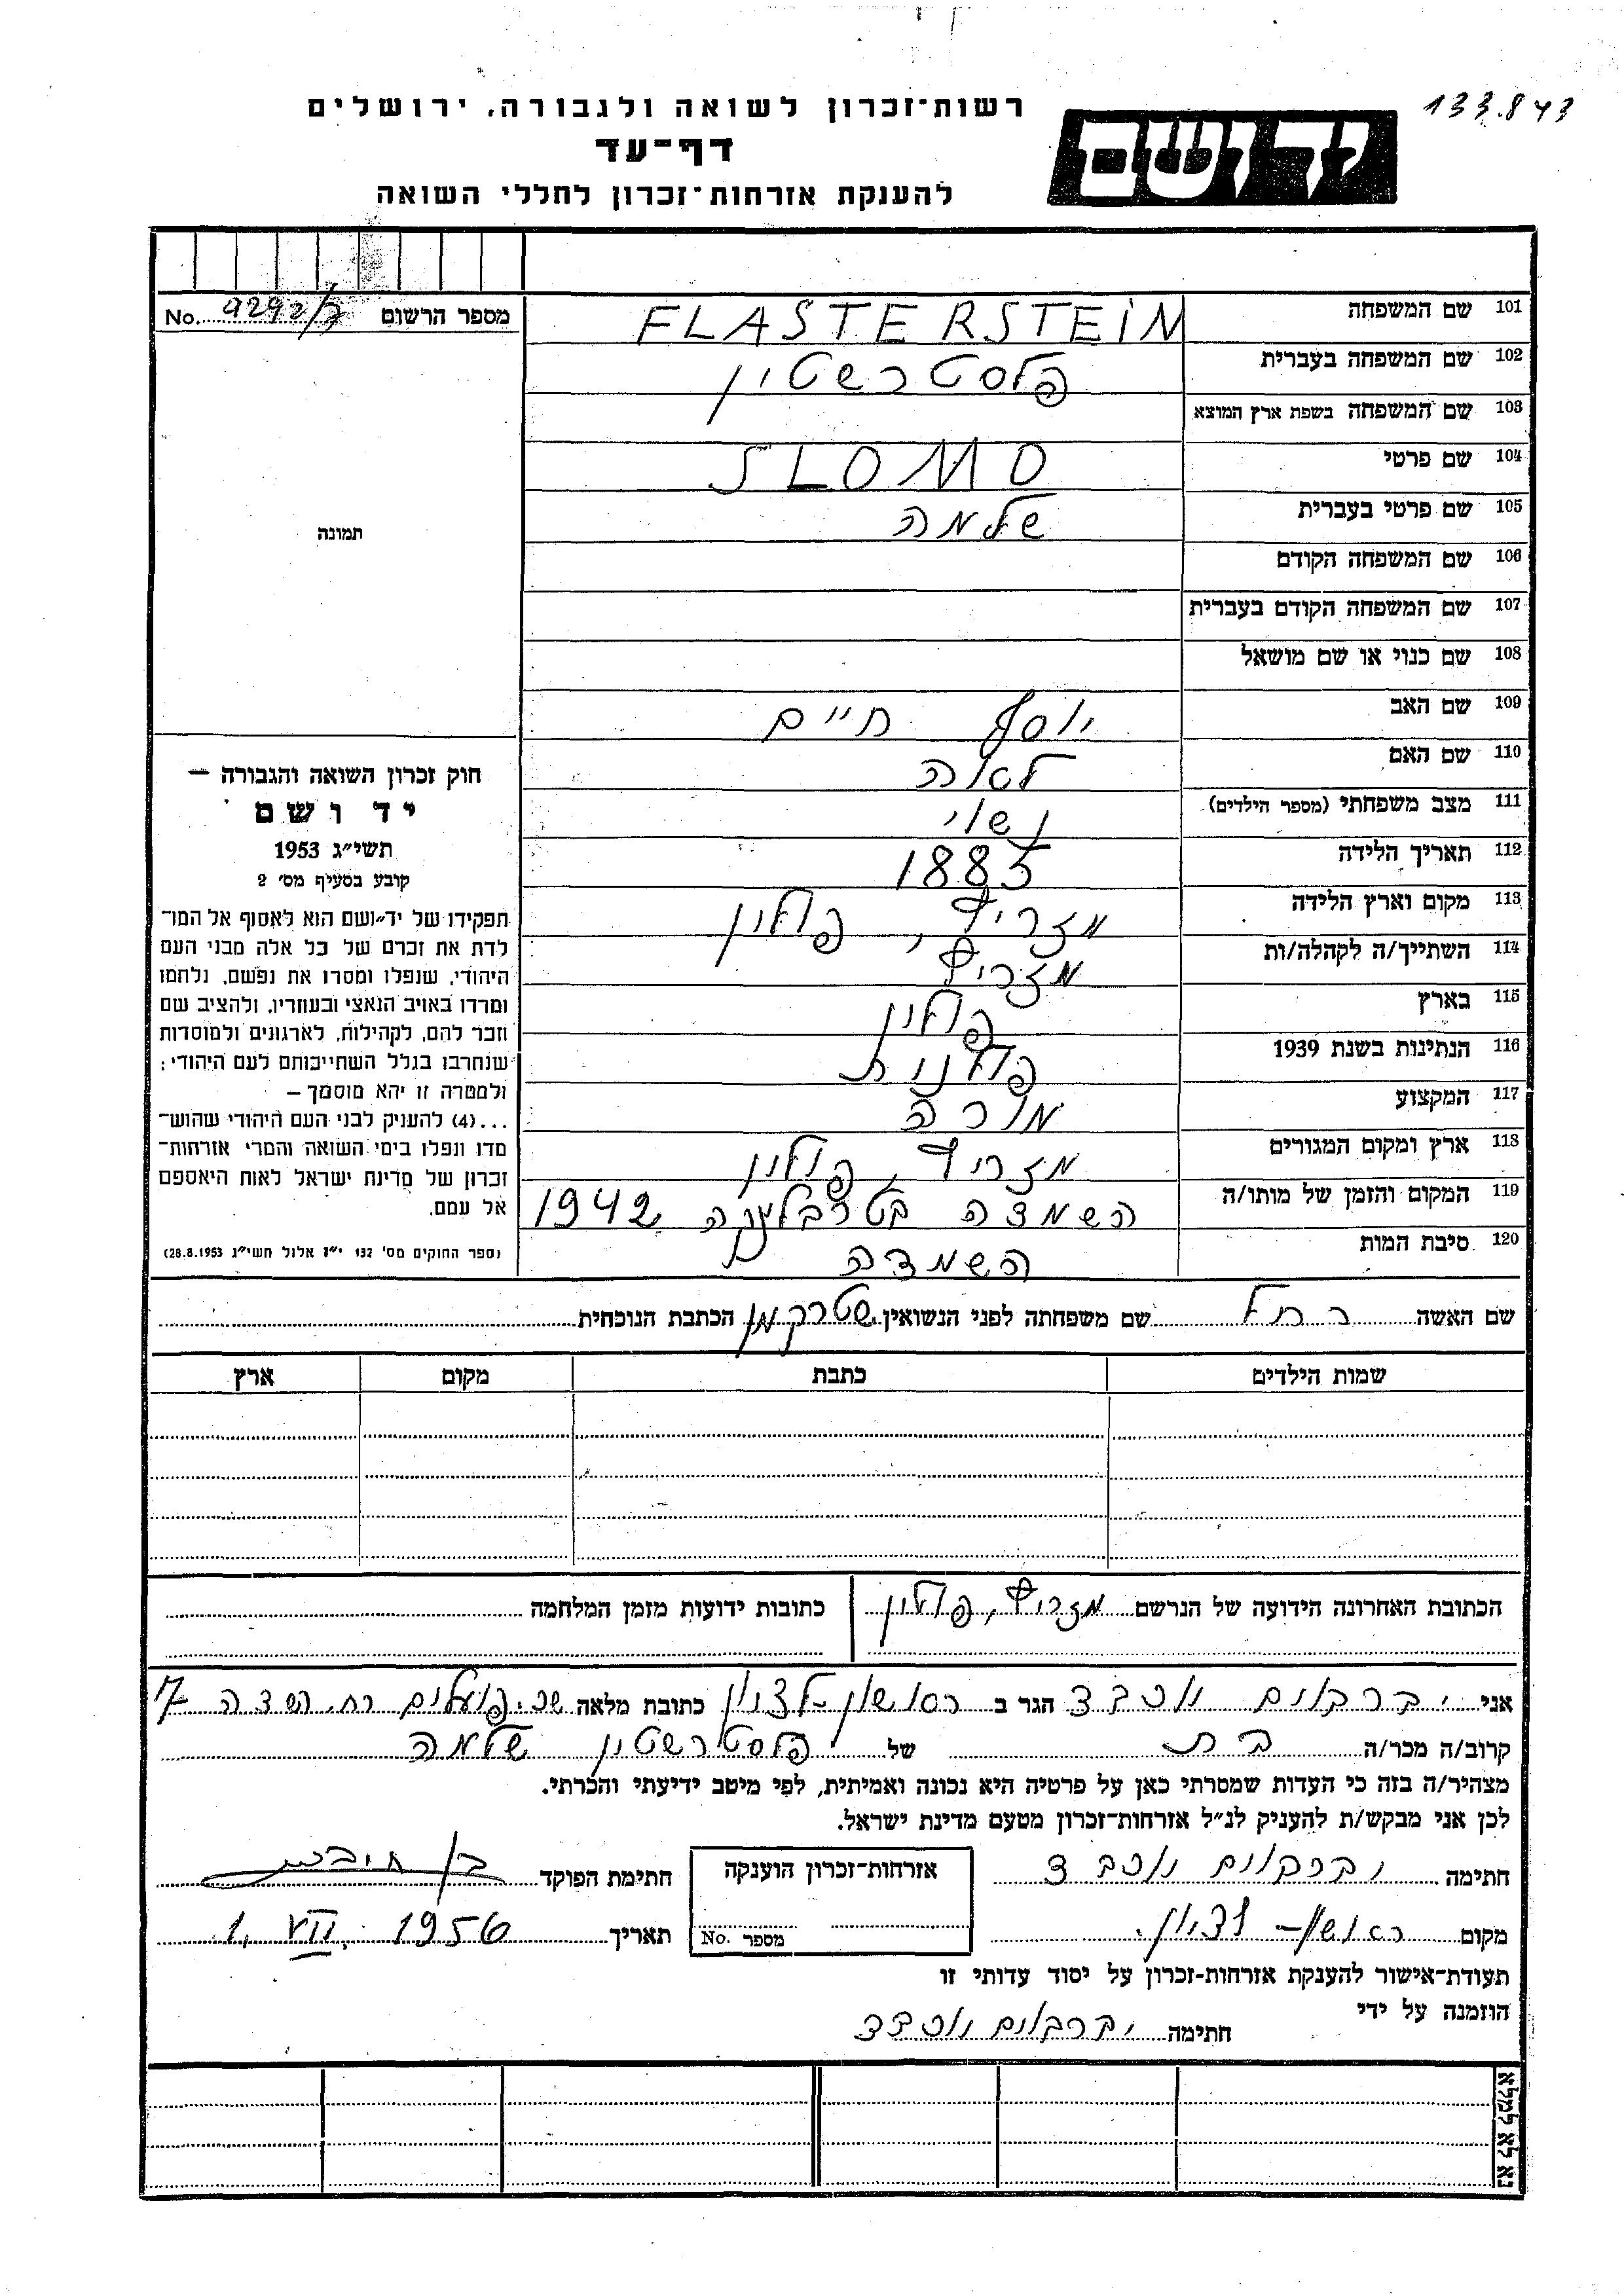 133.843
יד ושם
רשות־זכרון לשואה ולגבורה, ירושלים
דף־עד
להענקת אזרחות־זכרון לחללי השואה
מספר הרשום 9292/7 No.
101 שם המשפחה FLASTERSTEIN
102 שם המשפחה בעברית פלסטרשטין
103 שם המשפחה בשפת ארץ המוצא
104 שם פרטי SLOMO
105 שם פרטי בעברית שלמה
106 שם המשפחה הקודם
107 שם המשפחה הקודם בעברית
108 שם כנוי או שם מושאל
109 שם האב יוסף חיים
110 שם האם לאה
111 מצב משפחתי (מספר הילדים) נשוי
112 תאריך הלידה 1885
113 מקום וארץ הלידה מזריץ, פולין
114 השתייך/ה לקהלה/ות מזריץ
115 בארץ פולין
116 הנתינות בשנת 1939 פולנית
117 המקצוע מורה
118 ארץ ומקום המגורים מזריץ, פולין
119 המקום והזמן של מותו/ה השמדה בטרבלינקה 1942
120 סיבת המות השמדה
תמונה
חוק זכרון השואה והגבורה —
יד ושם
תשי״ג 1953
קובע בסעיף מס׳ 2
תפקידו של יד־ושם הוא לאסוף אל המו־
לדת את זכרם של כל אלה מבני העם
היהודי, שנפלו ומסרו את נפשם, נלחמו
ומרדו באויב הנאצי ובעוזריו, ולהציב שם
וזכר להם, לקהילות, לארגונים ולמוסדות
שנחרבו בגלל השתייכותם לעם היהודי;
ולמטרה זו יהא מוסמך —
...(4) להעניק לבני העם היהודי שהוש־
מדו ונפלו בימי השואה והמרי אזרחות־
זכרון של מדינת ישראל לאות היאספם
אל עמם.
(ספר החוקים מס׳ 132 י״ז אלול תשי״ג 28.8.1953)
שם האשה רחל שם משפחתה לפני הנשואין שטרקמן הכתבת הנוכחית
שמות הילדים כתבת מקום ארץ
הכתובת האחרונה הידועה של הנרשם מזריץ, פולין כתובות ידועות מזמן המלחמה
אני יוכבד הגר ב ראשון-לצין כתובת מלאה שכ. פועלים רח. השדה 7
קרוב/ה מכר/ה בת של פלסטרשטין שלמה
מצהיר/ה בזה כי העדות שמסרתי כאן על פרטיה היא נכונה ואמיתית, לפי מיטב ידיעתי והכרתי.
לכן אני מבקש/ת להעניק לנ״ל אזרחות־זכרון מטעם מדינת ישראל.
חתימה יוכבד אזרחות־זכרון הוענקה חתימת הפוקד
מקום ראשון-לציון מספר No. תאריך 1. VII. 1956
תעודת־אישור להענקת אזרחות־זכרון על יסוד עדותי זו
הוזמנה על ידי
חתימה יוכבד
נא לא למלא